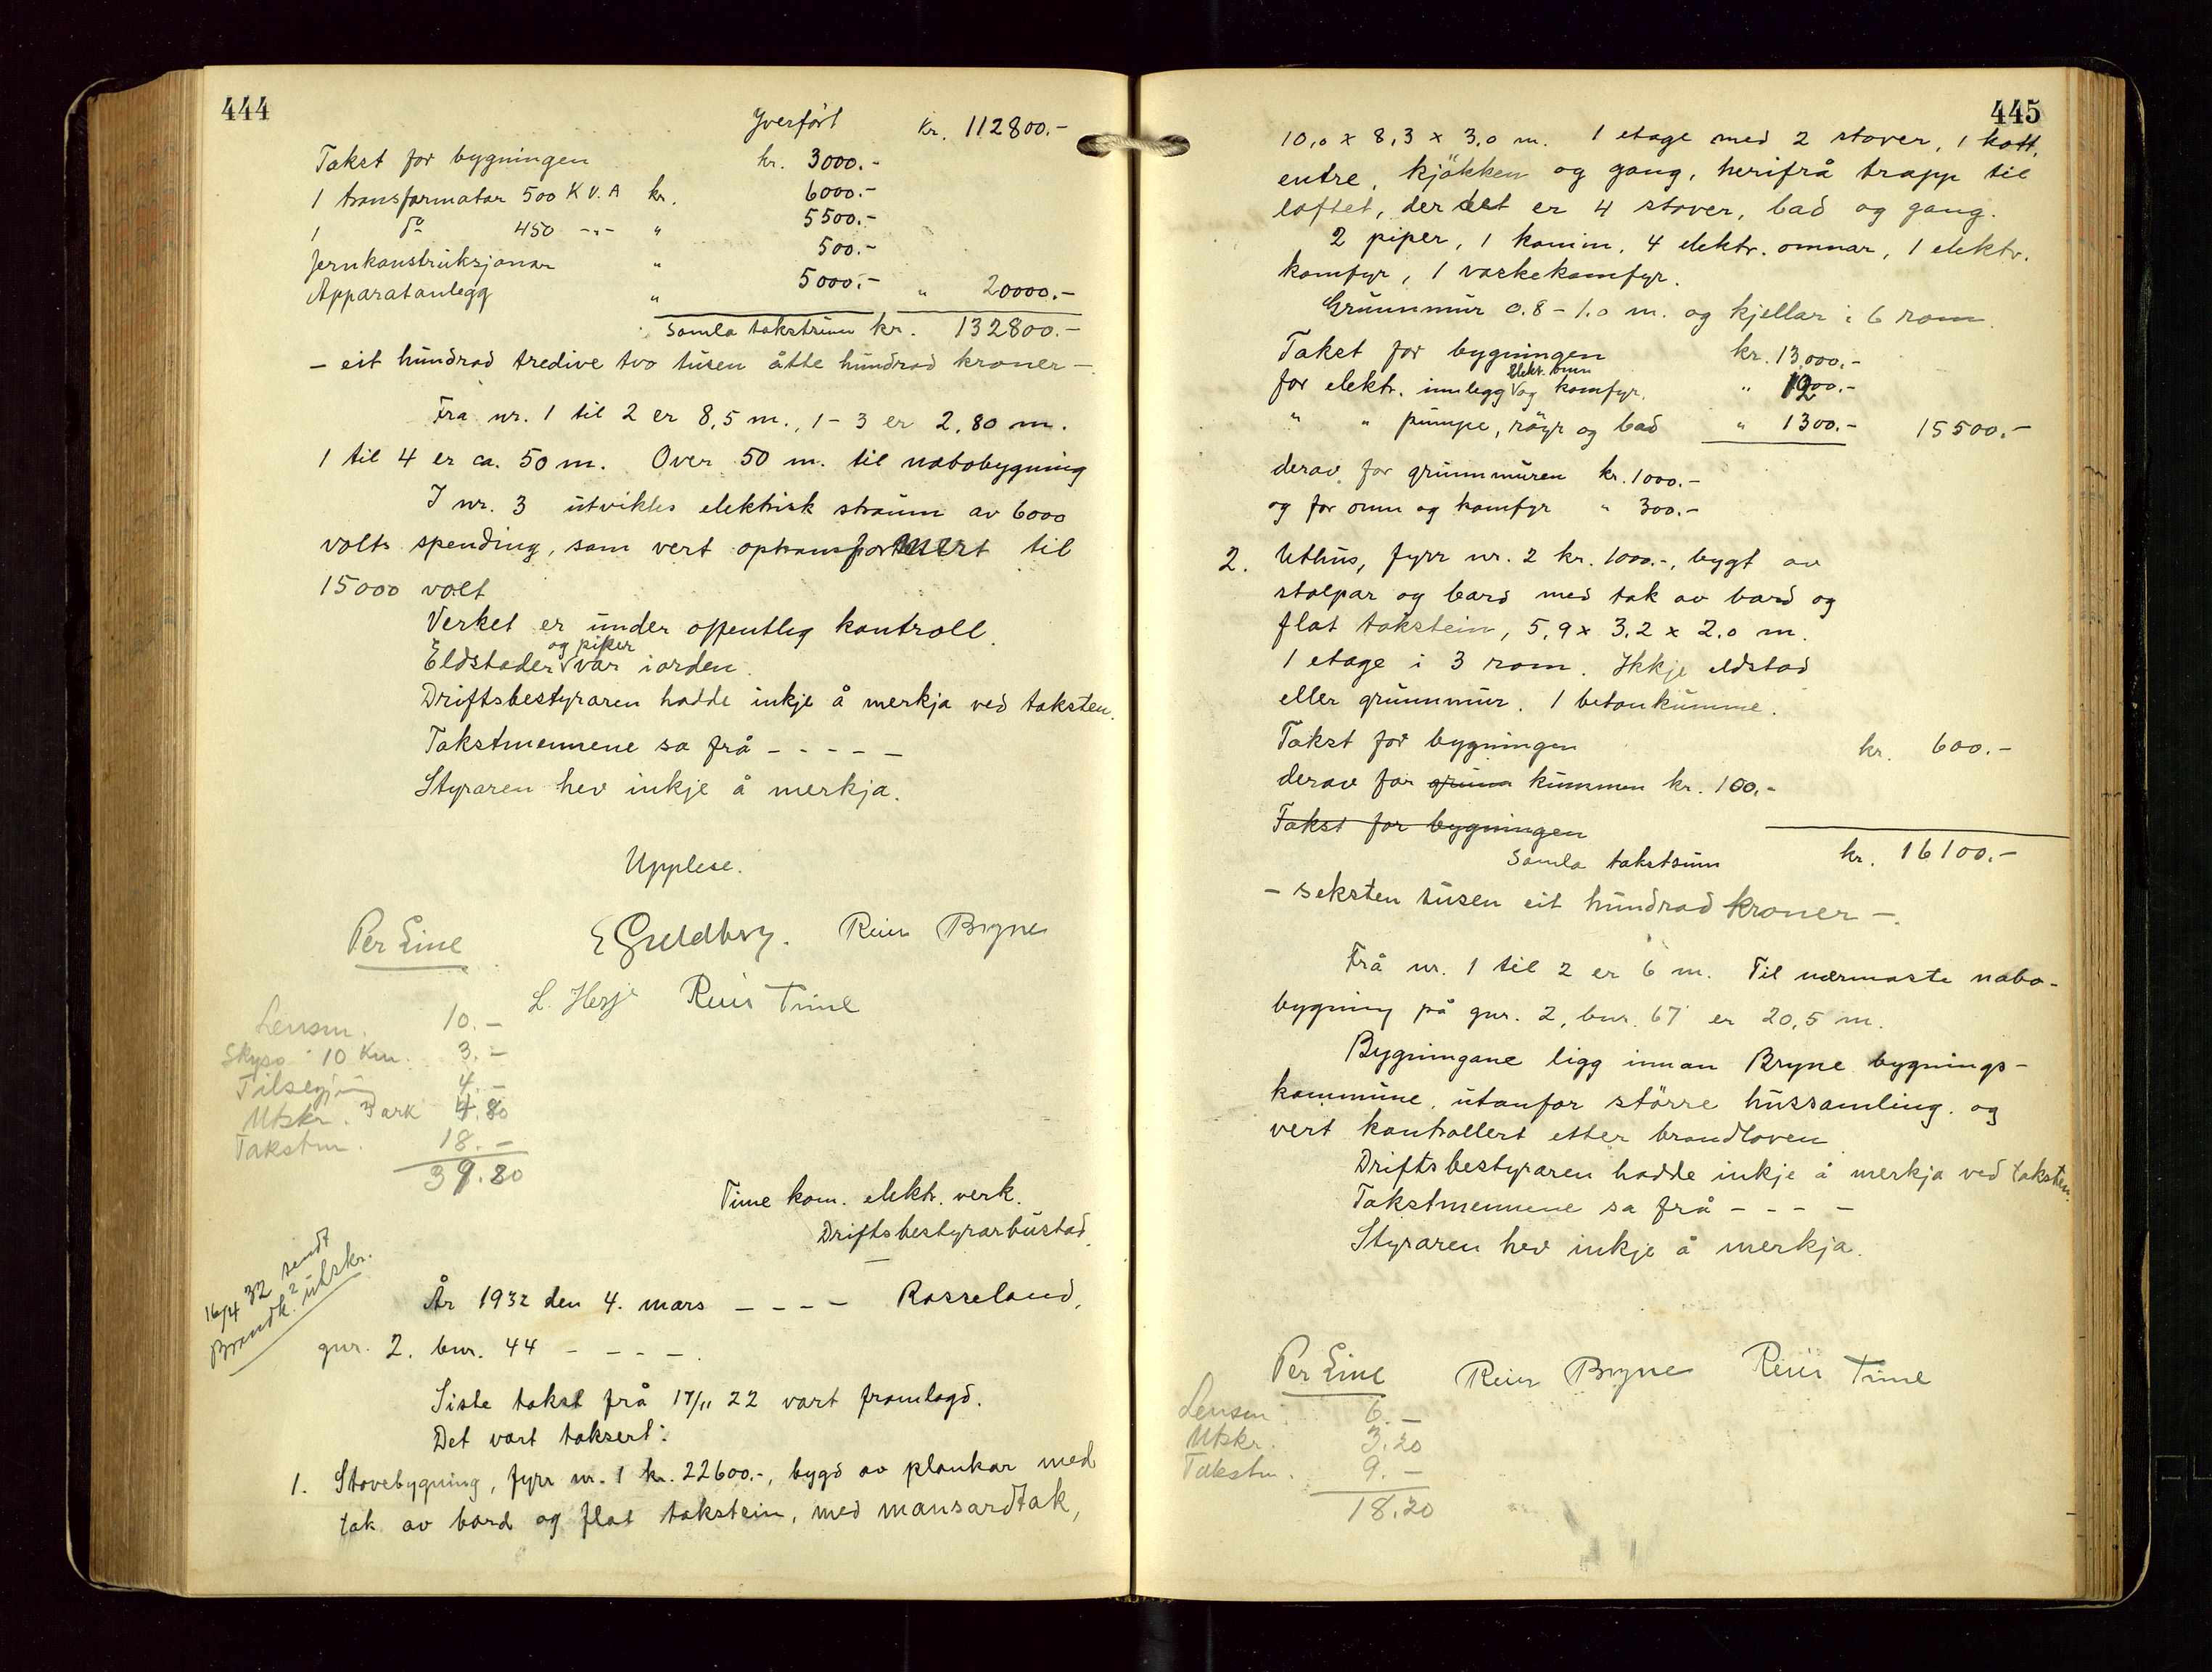 444
Yverført kr. 112800.-
Takst for bygningen kr. 3000.-
1 transformator 500 K V. A kr. 6000.-
1 do 450 -"- " 5500.-
Jernkonstruksjonar " 500.-
Apparatanlegg " 5000.- " 20000.-
Samla takstsum kr. 132800.-
- eit hundrad tredive tvo tusen åtte hundrad kroner -.
Fra nr. 1 til 2 er 8,5 m., 1 - 3 er 2,80 m.
1 til 4 er ca. 50 m. Over 50 m. til nabobygning
I nr. 3 utvikles elektrisk straum av 6000
volts spending, som vert optransformert til
15000 volt
Verket er under offentleg kontroll.
og piper
Eldstader V var i orden.
Driftsbestyraren hadde inkje å merkja ved taksten.
Takstmennene sa frå - - - - -
Styraren hev inkje å merkja.
Upplese.
Per Line E Guldbrg. Reier Bryne
L. Hesje Reier Time
Lensm. 10.-
Skyss 10 Km. 3.-
Tilsegjing 4.-
Utskr. 3 ark 4.80
Takstm. 18.-
39.80
Time kom. elektr. verk.
Driftsbestyrarbustad.
16/4 32 sendt
Brandk. 2 utskr.
År 1932 den 4. mars - - - - Rosseland,
gnr. 2. bnr. 44 - - - -.
Siste takst frå 17/11 22 vart framlagd.
Det vart taksert:
1. Stovebygning, fyrr nr. 1 kr. 22600.-, bygd av plankar med
tak av bord og flat takstein, med mansardtak,
445
10,0 x 8,3 x 3,0 m. 1 etage med 2 stover, 1 kott,
entre, kjökken og gang, herifrå trapp til
loftet, der det er 4 stover, bad og gang.
2 piper, 1 kamin, 4 elektr. omnar, 1 elektr.
komfyr, 1 vaskekomfyr.
Grunnmur 0.8 - 1.0 m. og kjellar i 6 rom.
Takst for bygningen kr. 13000.-
elektr. omn
for elektr. innlegg V og komfyr. " 1200.-
" " pumpe, röyr og bad " 1300.- 15500.-
derav for grunnmuren kr. 1000.-
og for omn og komfyr " 300.-
2. Uthus, fyrr nr. 2 kr. 1000.-, bygt av
stolpar og bord med tak av bord og
flat takstein, 5,9 x 3,2 x 2,0 m.
1 etage i 3 rom. Ikkje eldstad
eller grunnmur. 1 betonkumme.
Takst for bygningen kr. 600.-
derav for grunn kummen kr. 100.-
Takst for bygningen
Samla takstsum kr. 16100.-
- seksten tusen eit hundrad kroner -.
Frå nr. 1 til 2 er 6 m. Til nærmaste nabo-
bygning på gnr. 2, bnr. 67 er 20,5 m.
Bygningane ligg innan Bryne bygnings-
kommune, utanfor större hussamling, og
vert kontrollert etter brandloven
Driftsbestyraren hadde inkje å merkja ved taksten.
Takstmennene sa frå - - - -
Styraren hev inkje å merkja.
Per Line Reier Bryne Reier Time
Lensm. 6.-
Utskr. 3.20
Takstm. 9.-
18.20